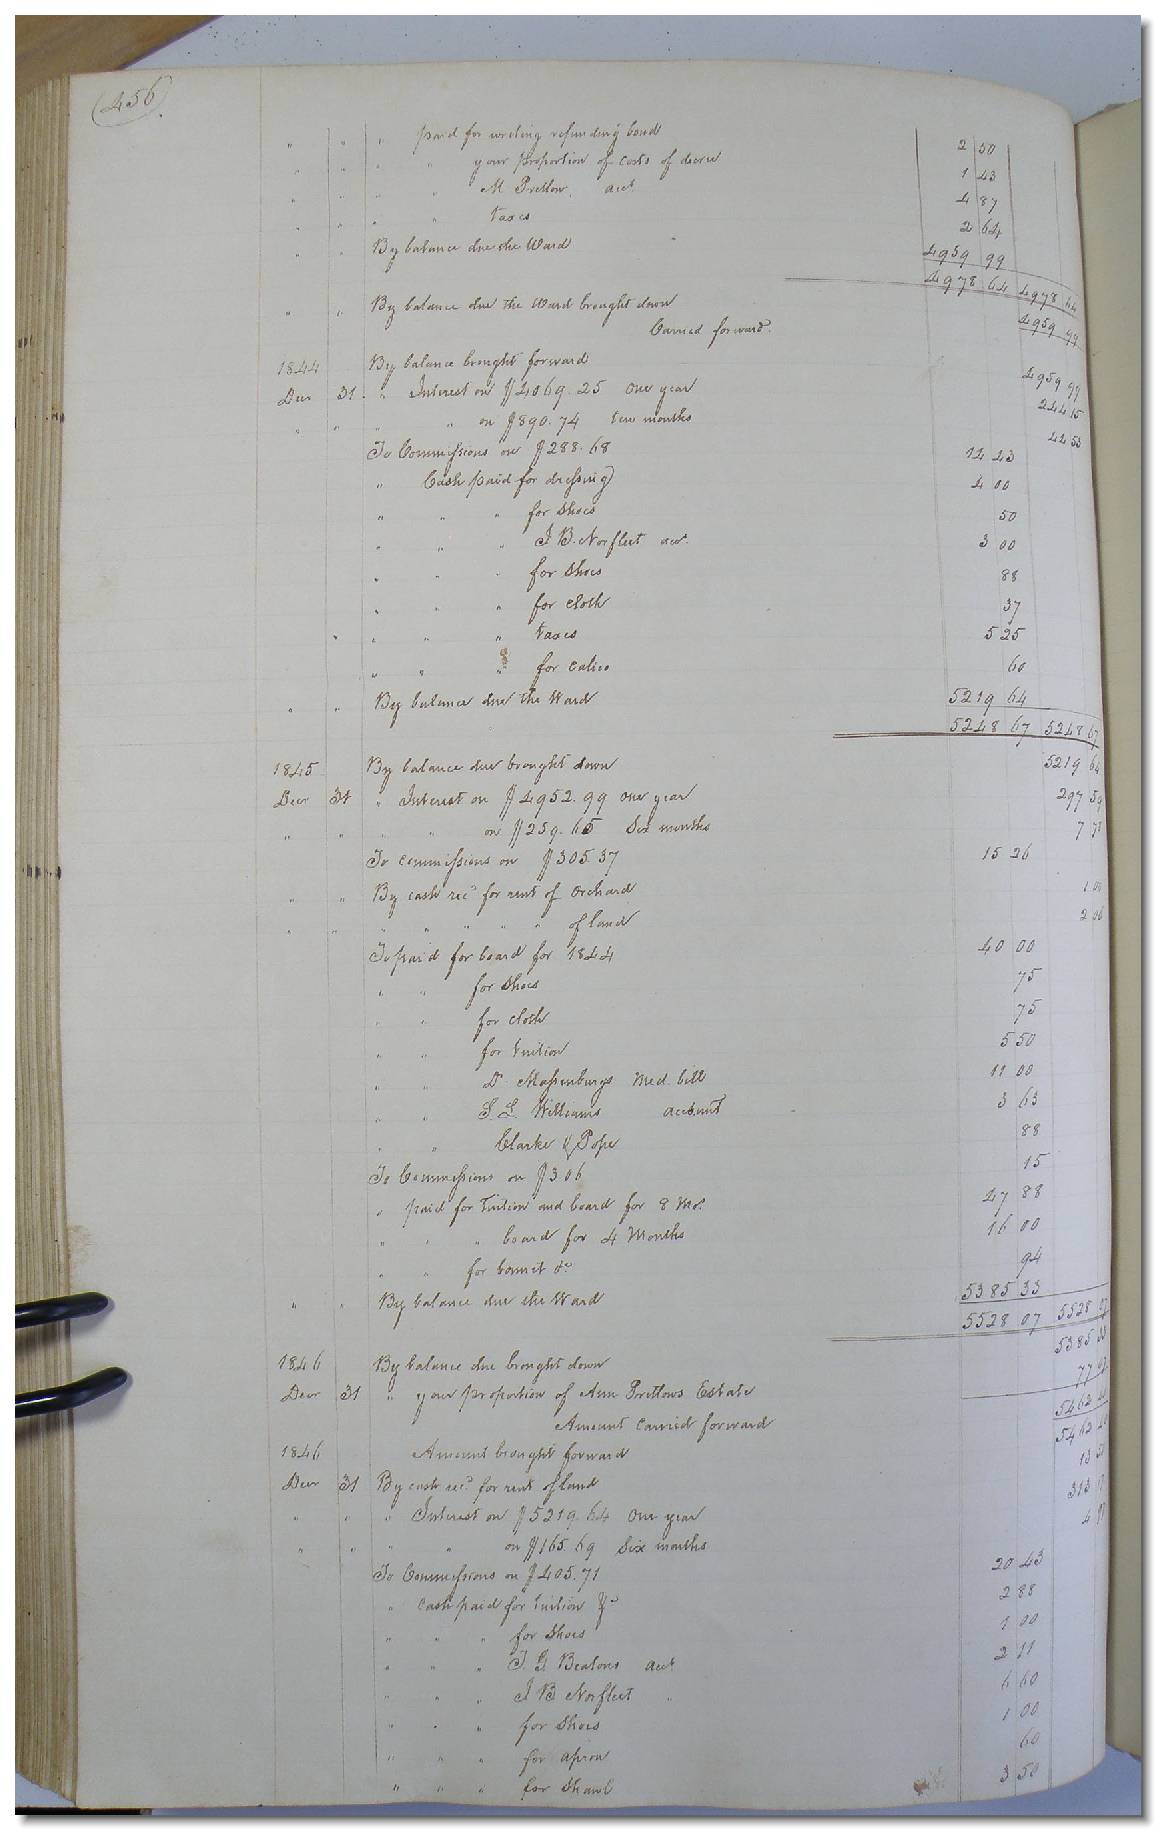 456
" " " paid for writing refunding bond 2 50
" " " " your proportion of costs of decree 1 43
" " " " M Pretlow acct 4 87
" " " " taxes 2 64
" " By balance due the Ward 4959 99
4978 64 4978 64
" " By balance due the Ward brought down 4959 99
Carried forward
1844 By balance brought forward 4959 99
Decr 31 " Interest on $4069.25 One year 244 15
" " " " on $890.74 ten months 44 53
To Commissions on $288.68 14 43
" Cash paid for dressing 4 00
" " " for shoes 50
" " " J B. Norfleet acct. 3 00
" " " for shoes 88
" " " for cloth 37
" " " " taxes 5 25
" " " for calico 60
" " By balance due the Ward 5219 64
5248 67 5248 67
1845 By balance due brought down 5219 64
Decr 31 " Interest on $4952.99 One year 297 59
" " " " on $259.65 Six months 7 78
To commissions on $305.37 15 26
" " By cash recd for rent of Orchard 1 00
" " " " " " " of land 2 06
To paid for board for 1844 40 00
" " for shoes 75
" " for cloth 75
" " for tuition 5 50
" " Dr Massenburgs Med. bill 11 00
" " S L Williams account 3 63
" " Clarke & Pope 88
To Commissions on $3.06 15
" paid for Tuition and board for 8 Mos. 47 88
" " " board for 4 Months 16 00
" " for bonnet &c 94
" " By balance due the Ward 5385 33
5528 07 5528 07
1846 By balance due brought down 5385 33
Decr 31 " your proportion of Ann Pretlows Estate 77
Amount carried forward 5462
1846 Amount brought forward 5462
Decr 31 By cash recd for rent of land 13
" " " Interest on $5219.64 One year 313
" " " " on $165.69 Six months 4
To Commissions on $405.71 20 43
" Cash paid for tuition &c 2 88
" " " for Shoes 1 00
" " " Beatons acct 2 11
" " " J B Norfleet " 6 60
" " " for Shoes 1 00
" " " for apron 60
" " " for Shawl 3 50